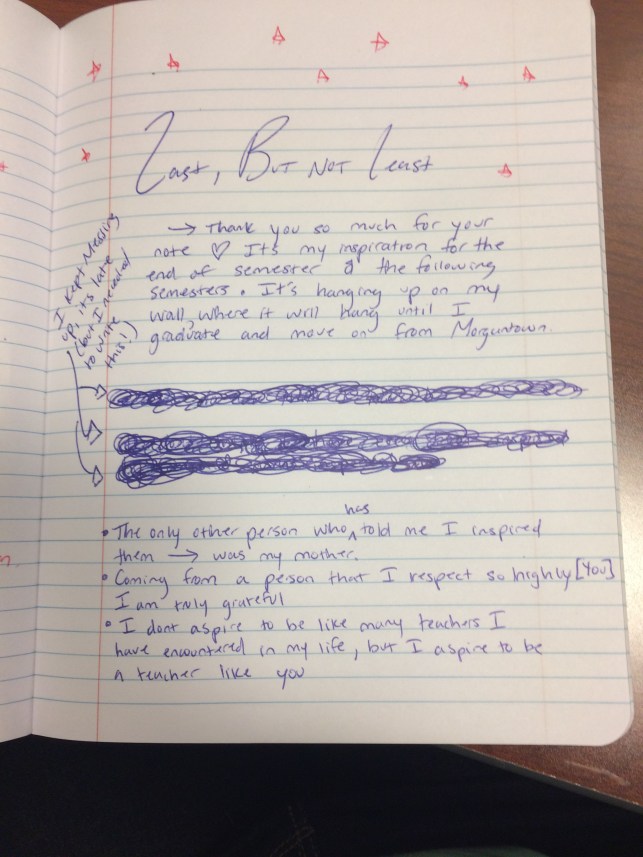 Last, But Not Least
→ Thank you so much for your
note ♡ It's my inspiration for the
end of semester & the following
semesters. It's hanging up on my
wall, where it will hang until I
graduate and move on from Morgantown.
I kept Messing
up, it's late
(but I needed
to write
this!)
• The only other person who has told me I inspired
them → was my mother.
• Coming from a person that I respect so highly [You]
I am truly grateful
• I dont aspire to be like many teachers I
have encountered in my life, but I aspire to be
a teacher like you